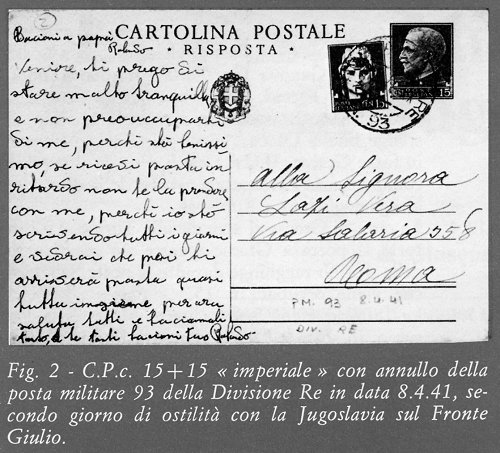 2
CARTOLINA POSTALE
RISPOSTA
Bacioni a papà
Rolando
ti prego di
stare molto tranquilla
e non preoccuparti
di me, perchè stò benissi
mo, se ricevi posta in
ritardo non te la prendere
con me, perchè io stò
scrivendo tutti i giorni
e vedrai che poi ti
arriverà posta quasi
tutta insieme per ora
saluta tutti e baciameli
tanto, a te tanti bacioni tuo Rolando
15
93
RE
Alla Signora
Lapi Vera
Via Salaria 356
Roma
PM. 93 8.4.41
DIV. RE
Fig. 2 - C.P.c. 15+15 « imperiale » con annullo della
posta militare 93 della Divisione Re in data 8.4.41, se-
condo giorno di ostilità con la Jugoslavia sul Fronte
Giulio.